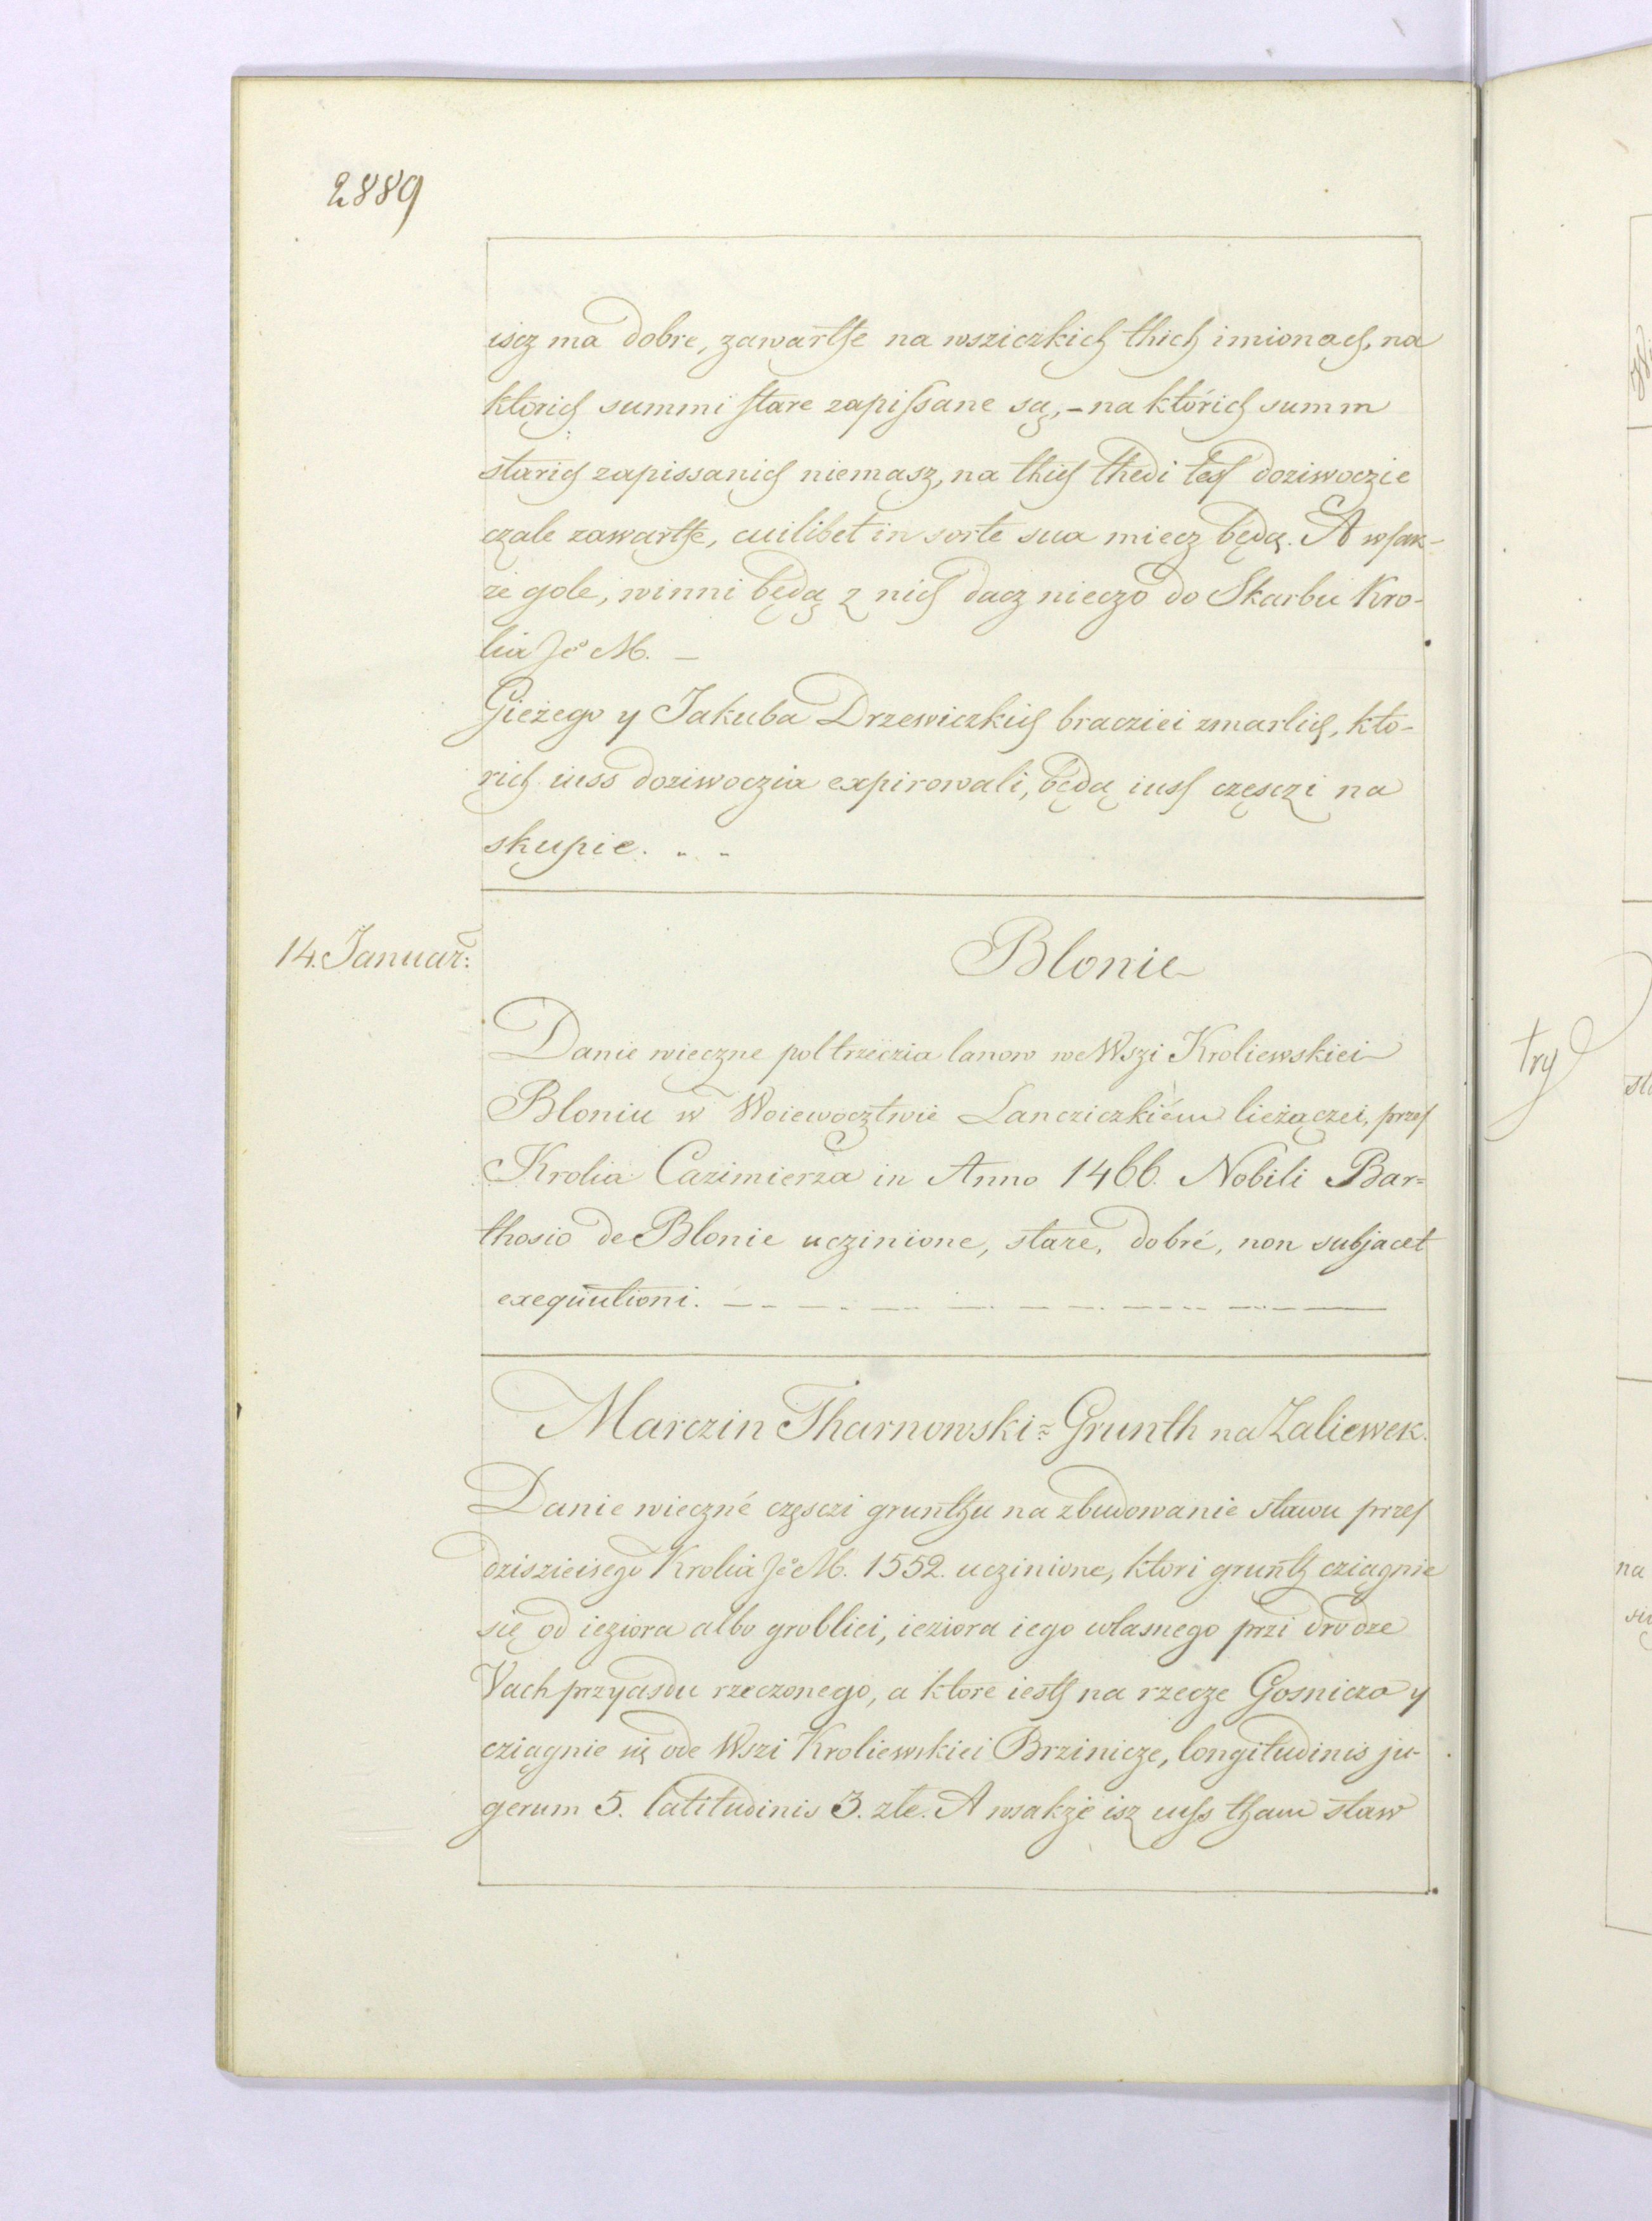 2889
iscz ma dobre, zawarthe na wsziczkich thich imionach, na
ktorich summi stare zapissane są, – na którich summ
starich zapissanich niemasz, na thich thedi tesz doziwoczie
czale zawarthe, cuilibet in sorte sua miecz będą. A wsak-
ze gole, winni będą z nich dacz nieczo do Skarbu Kro-
lia Jeº M. –
Gieżego y Jakuba Drzewiczkich bracziei zmarlich, kto-
rich iuss doziwoczia expirowali, będą iuss częsczi na
skupie. . .
14. Januar:
Blonie
Danie wieczne poltrzeczia lanow we Wszi Kroliewskiei
Bloniu w Woiewocztwie Lancziczkiém lieżączei, przes
Krolia Cazimierza in Anno 1466. Nobili Bar=
thosio de Blonie uczinione, stare, dobré, non subjacet
exequutioni.
Marczin Tharnowski = Grunth na Zaliewek.
Danie wieczné częsczi grunthu na zbudowanie stawu przes
dziszieisego Krolia Jeº M. 1552. uczinione, ktori grunth cziągnie
się od ieziora albo grobliei, ieziora iego własnego przi drodze
Vach przyasdu rzeczonego, a ktore iesth na rzecze Gosnicza y
cziągnie się ode Wszi Kroliewskiei Brzinicze, longitudinis ju-
gerum 5. latitudinis 3. zte. A wsakże isz iuss tham staw
try
na